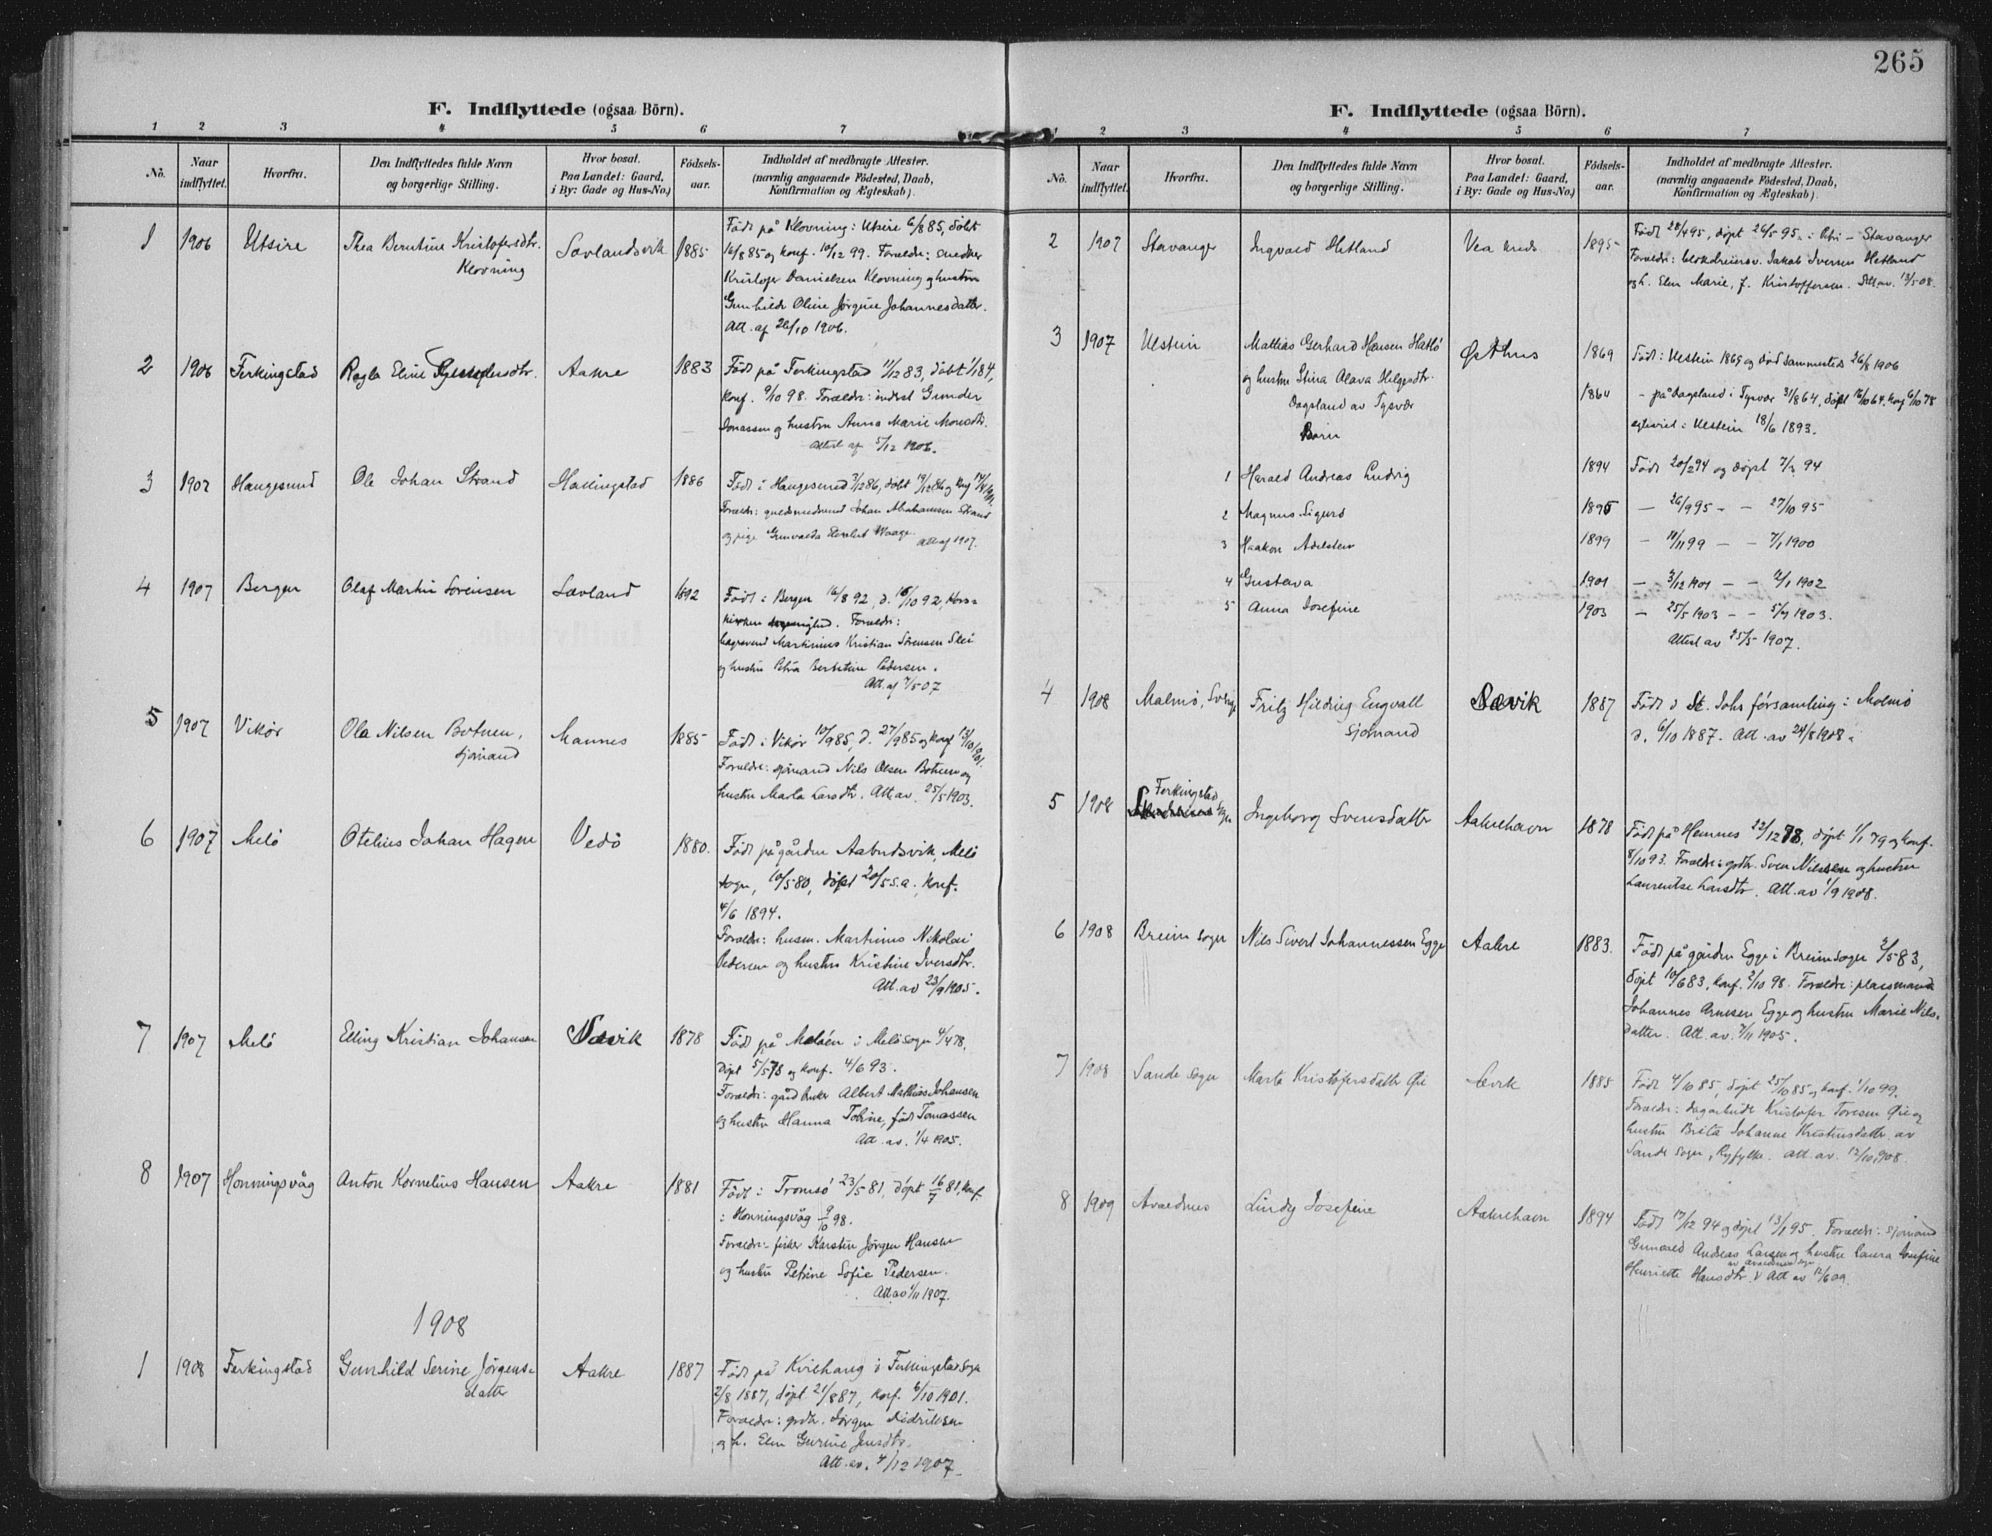 265
F. Indflyttede (ogsaa Börn).
1 2 3 4 5 6 7
No.
Naar indflyttet.
Hvorfra.
Den Indflyttedes fulde Navn
og borgerlige Stilling.
Hvor bosat.
Paa Landet: Gaard,
i By: Gade og Hus-No.)
Födsels-
aar.
Indholdet af medbragte Attester.
(navnlig angaaende Födested, Daab,
Konfirmation og Ægteskab).
1 1906 Utsire Thea Berntine Kristofersdtr. Sævlandsvik 1885
Klovning
Född på Klovning i Utsire 6/8 85, döbt
16/8 85 og konf. 10/12 99. Forældr: snedker
Kristofer Danielsen Klovning og hustru
Gunhilde Oline Jørgine Johannesdatter.
Att. af 26/10 1906.
2 1906 Ferkingstad Ragla Eline Aakre 1883
Född på Ferkingstad 11/12 83, döbt 1/1 84,
konf. 9/10 98. Forældr: inderst Gunder
Jonassen og hustru Anna Marie Monsdtr.
Attest af 5/12 1906.
3 1907 Haugesund Ole Johan Strand Hallingstad 1886
Född i Haugesund 3/12 86,
Forældr: guldsmedsvend Johan Abrahamsen Strand
og pige Gunvalda Waage.
Att af 1907.
4 1907 Bergen Olaf Martin Sorensen Sævland 1892
Född i Bergen 16/8 92, d. 16/10 92, Kors-
kirken. Forældr:
Martinius Kristian Sørensen
og hustru Petra Pedersen.
Att. af 7/5 07
5 1907 Vikør Ola Nilsen Botnen, Mannes 1885
sjømand
Född i Vikør 10/9 85, d. 27/9 85 og konf 13/10 1901.
Forældre: sjømand Nils Olsen Botnen og
hustru Marta Larsdtr. Att. av. 25/5 1903.
6 1907 Melö Otelius Johan Hagen Vedö 1880.
Född på gården Aabudsvik, Melö
sogn, 10/5 80, döpt 20/5 s.a., konf.
4/6 1894.
Forældr: husm. Martinus Nikolai
Pedersen og hustru Kristine Iversdtr.
Att. av 23/9 1905.
7 1907 Melö Elling Kristian Johansen Sævik 1878
Född på Meløen i Melö sogn 4/4 78,
döpt 5/5 78 og konf. 4/6 93.
Forældr: gårdbruker Albert Mathias Johansen
og hustru Hanna Tobine, född Tomassen
Att. av. 1/4 1905.
8 1907 Honningsvåg Anton Kornelius Hansen Aakre 1881
Född i Tromsö 23/5 81, döpt 16/7 81, konf.
i Honningsvåg 9/10 98.
Forældr: fisker Karsten Jørgen Hansen
og hustru Petrine Sofie Pedersen.
Att. av 1/11 1907.
1908
1 1908 Ferkingstad Gunhild Serine Jørgens- Aakre 1887
datter
Född på Kvilhaug i Ferkingstad sogn
2/8 1887, döpt 21/8 87, konf. 6/10 1901.
Forældr: grdbr. Jörgen Didriksen
og h. Elen Gurine Jensdtr.
Att. av. 4/12 1907.
F. Indflyttede (ogsaa Börn).
1 2 3 4 5 6 7
No.
Naar indflyttet.
Hvorfra.
Den Indflyttedes fulde Navn
og borgerlige Stilling.
Hvor bosat.
Paa Landet: Gaard,
i By: Gade og Hus-No.)
Födsels-
aar.
Indholdet af medbragte Attester.
(navnlig angaaende Födested, Daab,
Konfirmation og Ægteskab).
2 1907 Stavanger Ingvald Hetland Vea 1895
Född 28/4 95, döpt 26/5 95 i Petri – Stavanger
Forældr: Jakob Iversen Hetland
og h. Elen Marie, f. Kristoffersen. Att. av. 13/5 08.
3 1907 Utstein Mattias Gerhard Hansen Østhus 1869
Född i Utstein 1869 og död sammesteds 26/8 1906
og hustru Stina Olava Helgesdtr. 1864
Dagsland av Tysvær
- på Dagsland i Tysvær 31/8 64, döpt 16/10 64, konf 6/10 78
egteviet i Utstein 18/6 1893.
Børn
1 Harald Andreas Ludvig 1894 Född 20/2 94 og döpt 7/ 94
2 Magnus Sigurd 1895 — 26/9 95 - — 27/10 95
3 Haakon Adelstein 1899 — 11/11 99 — — 7/1 1900
4 Gustava 1901 — 3/12 1901 — — 12/1 1902
5 Anna Josefine 1903 — 25/5 1903 — — 5/7 1903.
Attest av 25/5 1907.
4 1908 Malmö, Sverige Fritz Hilding Engvall Sævik 1887
sjömand
Född i St. Johs församling i Malmö
d. 6/10 1887. Att. av 24/8 1908.
5 1908 Ferkingstad Ingeborg Svensdatter Aakrehavn 1878
Född på Hemnes 22/12 78, döpt 1/1 79 og konf.
8/10 93. Forældr: grdbr. Sven Nilssen og hustru
Laurentse Larsdtr. Att. av 1/9 1908.
6 1908 Breim sogn Nils Sivert Johannessen Egge Aakre 1883.
Född på gården Egge i Breim sogn 2/5 83,
döpt 10/6 83, konf. 2/10 98. Forældre: plassmand
Johannes Arnesen Egge og hustru Marie Nils-
datter. Att. av. 7/11 1905.
7 1908 Sande sogn Marta Kristofersdatter Øie Sævik 1885
Född 4/10 85, döpt 25/10 85 og konf. 1/10 99.
Forældr: dagarbeider Kristofer Toresen Øie og
hustru Brita Johanne Kristensdatter av
Sande sogn, Ryfylke. Att. av. 12/10 1908.
8 1909 Avaldnes Lindy Josefine Aakrehavn 1894
Född 17/12 94 og döpt 13/1 95. Forældr: sjömand
Gunvald Andreas Larsen og hustru Laura Josefine
Henriette Hansdtr. av Avaldsnes sogn Att av 12/6 09.